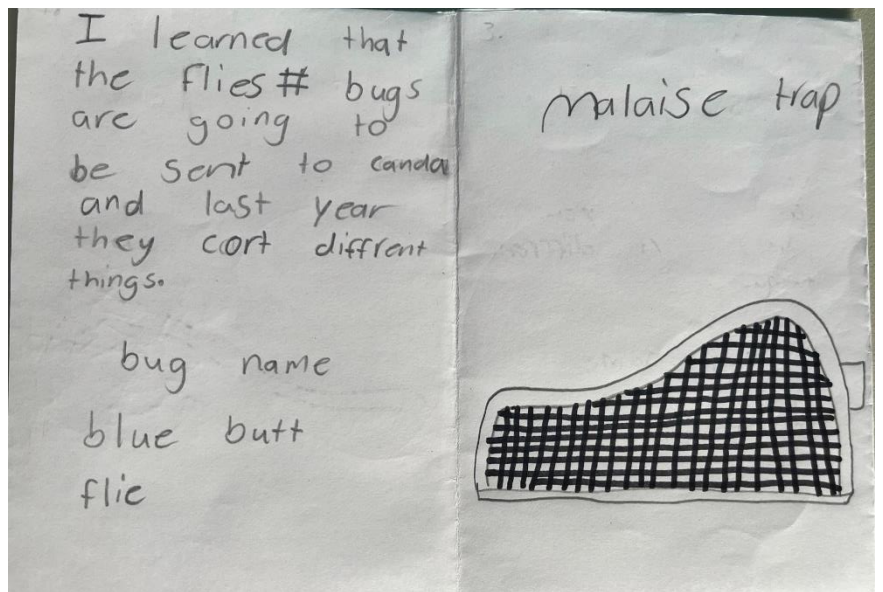 I learned that
the flies # bugs
are going to
be sent to canda
and last year
they cort diffrent
things.
bug name
blue butt
flie
3.
malaise trap